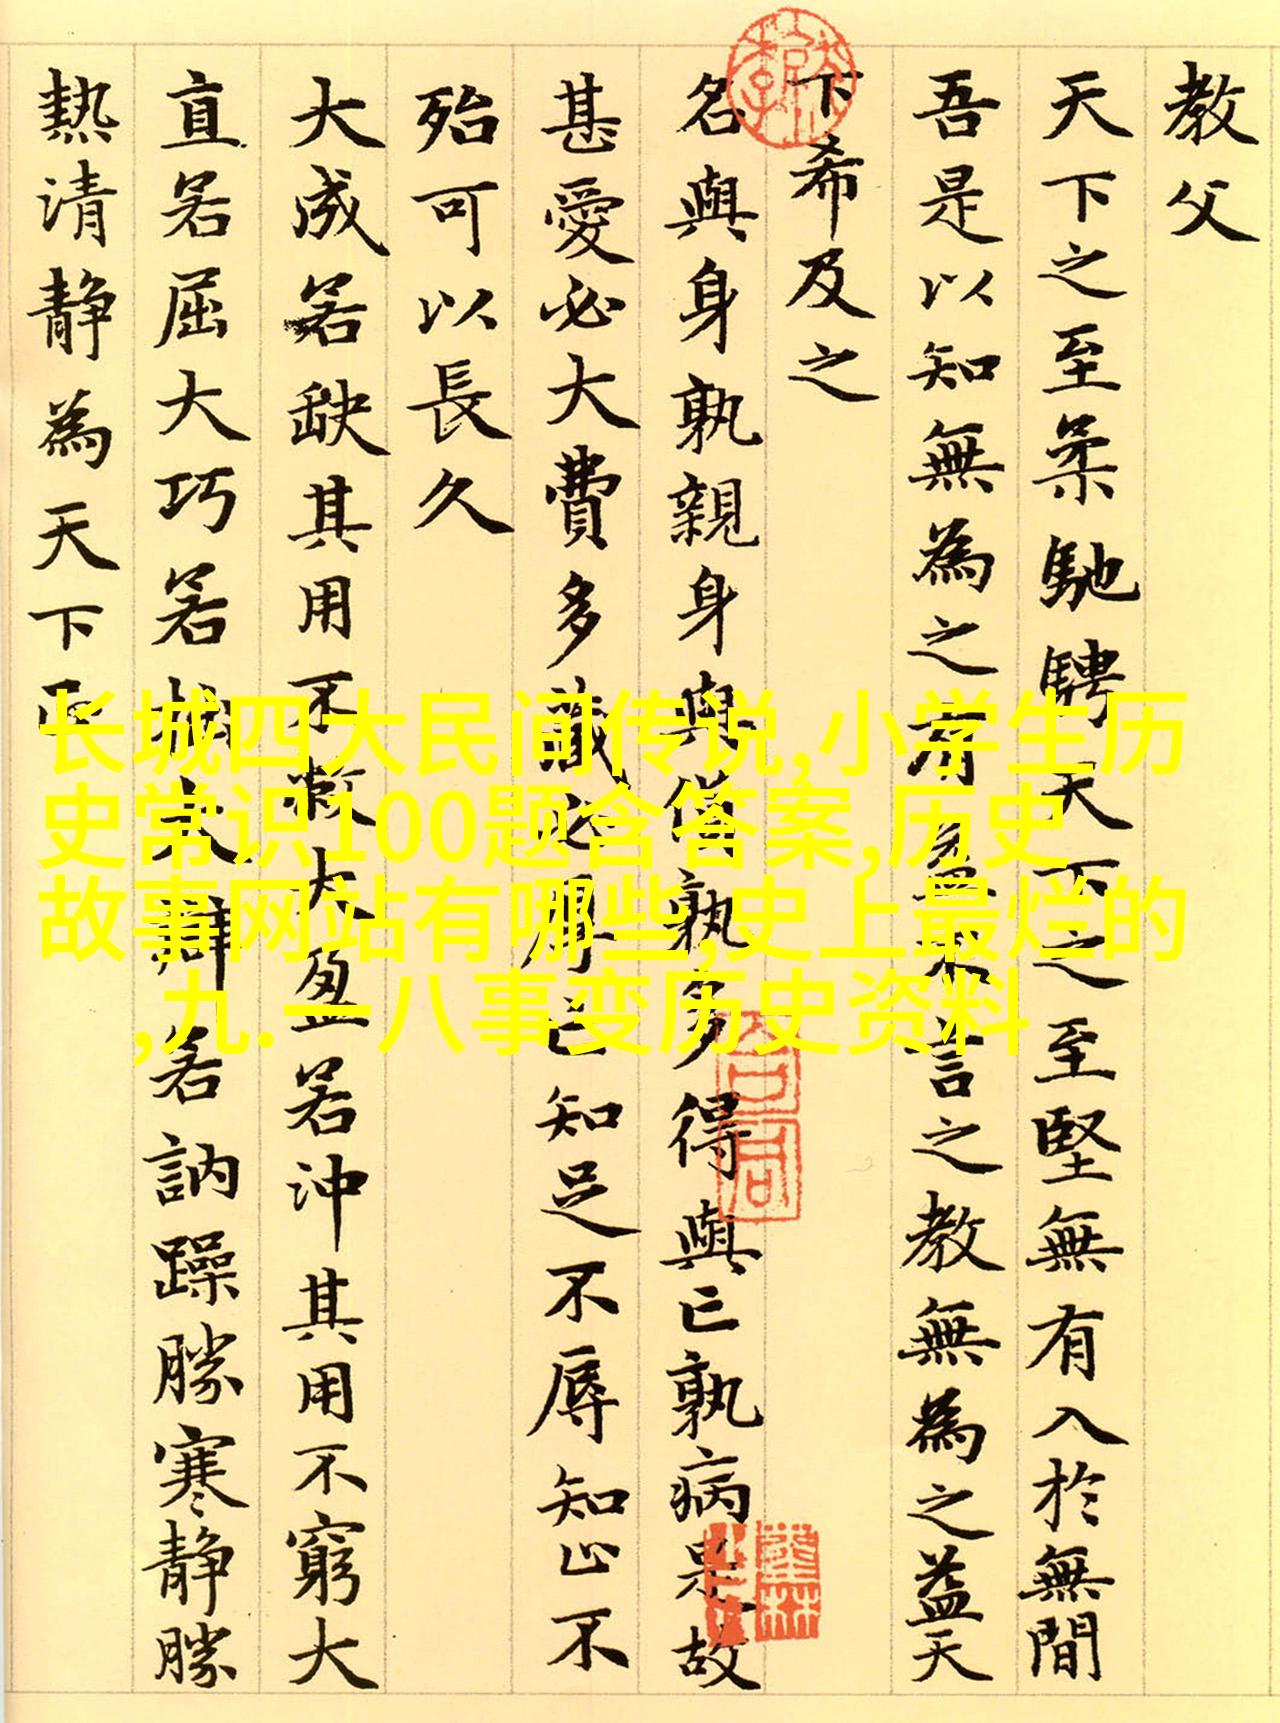 教父
天下之至柔馳騁天下之至堅無有入於無間
吾是以知無為之有益不言之教無為之益天
下希及之
名與身孰親身與貨孰多得與亡孰病是故
甚愛必大費多藏必厚亡知足不辱知止不
殆可以長久
大成若缺其用不敝大盈若沖其用不窮大
直若屈大巧若拙大辯若訥躁勝寒静勝
熱清静為天下正
长城四大民间传说,小学生历
史常识100题含答案,历史
故事网站有哪些,史上最烂的
,九.一八事变历史资料